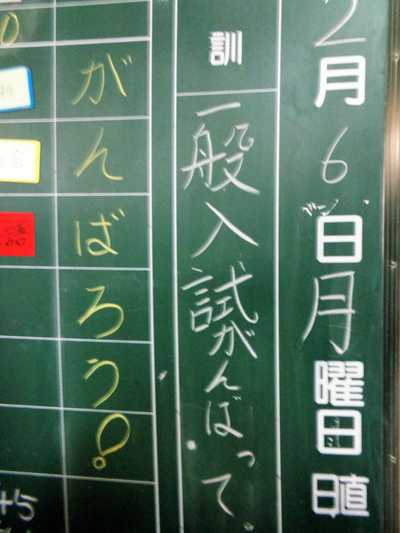 2月6日月曜日 日直
訓 一般入試がんばって。
がんばろう!
+5